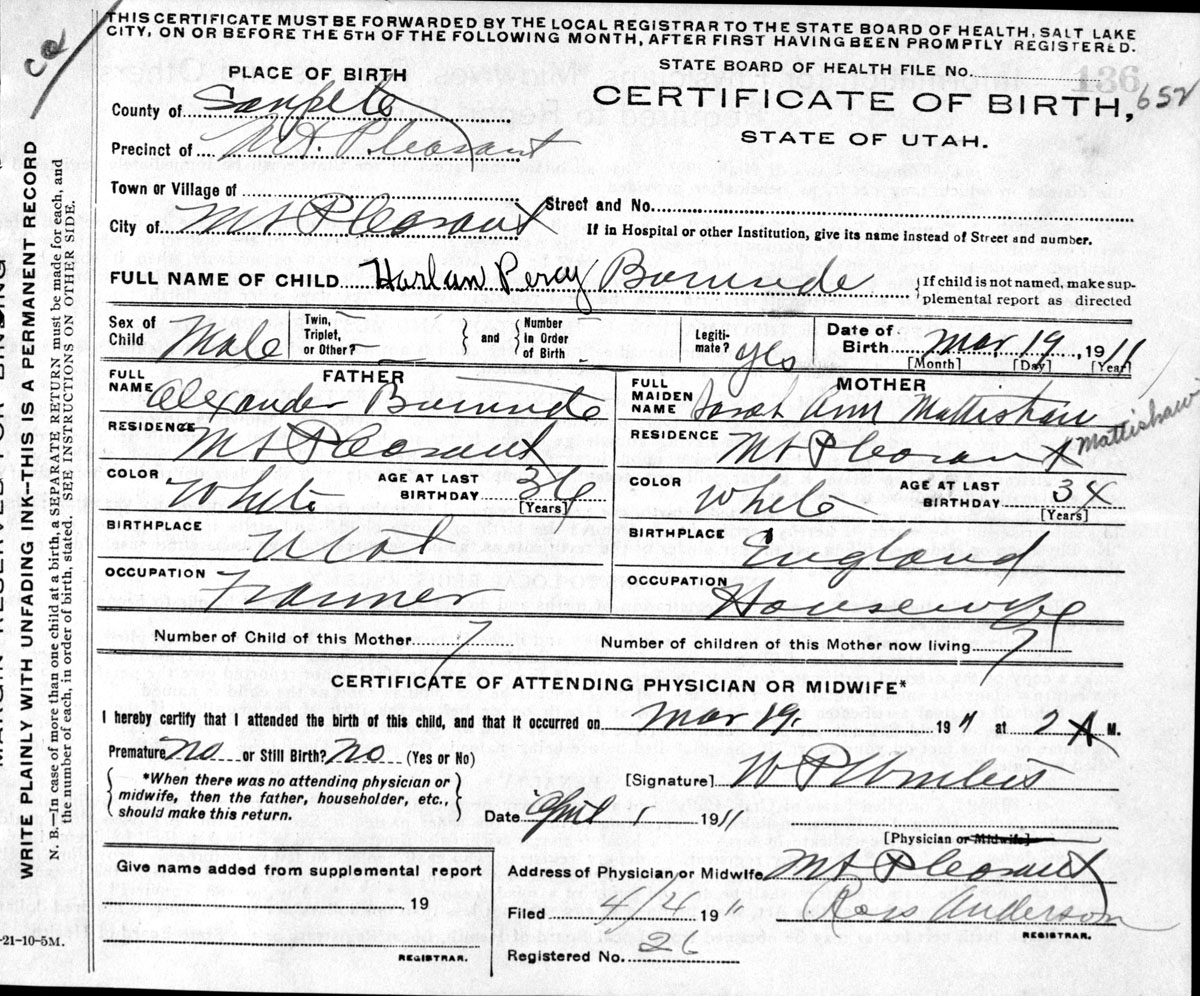 THIS CERTIFICATE MUST BE FORWARDED BY THE LOCAL REGISTRAR TO THE STATE BOARD OF HEALTH, SALT LAKE
CITY, ON OR BEFORE THE 5TH OF THE FOLLOWING MONTH, AFTER FIRST HAVING BEEN PROMPTLY REGISTERED.
STATE BOARD OF HEALTH FILE No.
PLACE OF BIRTH
CERTIFICATE OF BIRTH, 652
STATE OF UTAH.
County of Sanpete
Precinct of Mt. Pleasant
Town or Village of
Street and No.
City of Mt Pleasant
If in Hospital or other Institution, give its name instead of Street and number.
FULL NAME OF CHILD Harlan Percy
If child is not named, make sup-
plemental report as directed
Sex of Child Male
Twin, Triplet, or Other?
and
Number in Order of Birth
Legiti- mate? yes
Date of Birth Mar 19, 1911
[Month] [Day] [Year]
FATHER
FULL NAME Alexander
RESIDENCE Mt Pleasant
COLOR White
AGE AT LAST BIRTHDAY 36
[Years]
BIRTHPLACE Utah
OCCUPATION Farmer
MOTHER
FULL MAIDEN NAME Sarah Ann Mattishaw
Mattishaw
RESIDENCE Mt Pleasant
COLOR White
AGE AT LAST BIRTHDAY
[Years]
BIRTHPLACE England
OCCUPATION Housewife
Number of Child of this Mother 7
Number of children of this Mother now living 7
CERTIFICATE OF ATTENDING PHYSICIAN OR MIDWIFE*
I hereby certify that I attended the birth of this child, and that it occurred on Mar 19. 1911 at 2 A M.
Premature? no or Still Birth? no (Yes or No)
*When there was no attending physician or
midwife, then the father, householder, etc.,
should make this return.
[Signature]
Date April 1 1911
[Physician or Midwife]
Address of Physician or Midwife Mt Pleasant
Filed 4/4 1911 Ross Anderson
REGISTRAR.
Registered No. 26
Give name added from supplemental report
19
REGISTRAR.
WRITE PLAINLY WITH UNFADING INK—THIS IS A PERMANENT RECORD
N. B.—In case of more than one child at a birth, a SEPARATE RETURN must be made for each, and
the number of each, in order of birth, stated. SEE INSTRUCTIONS ON OTHER SIDE.
-21-10-5M.